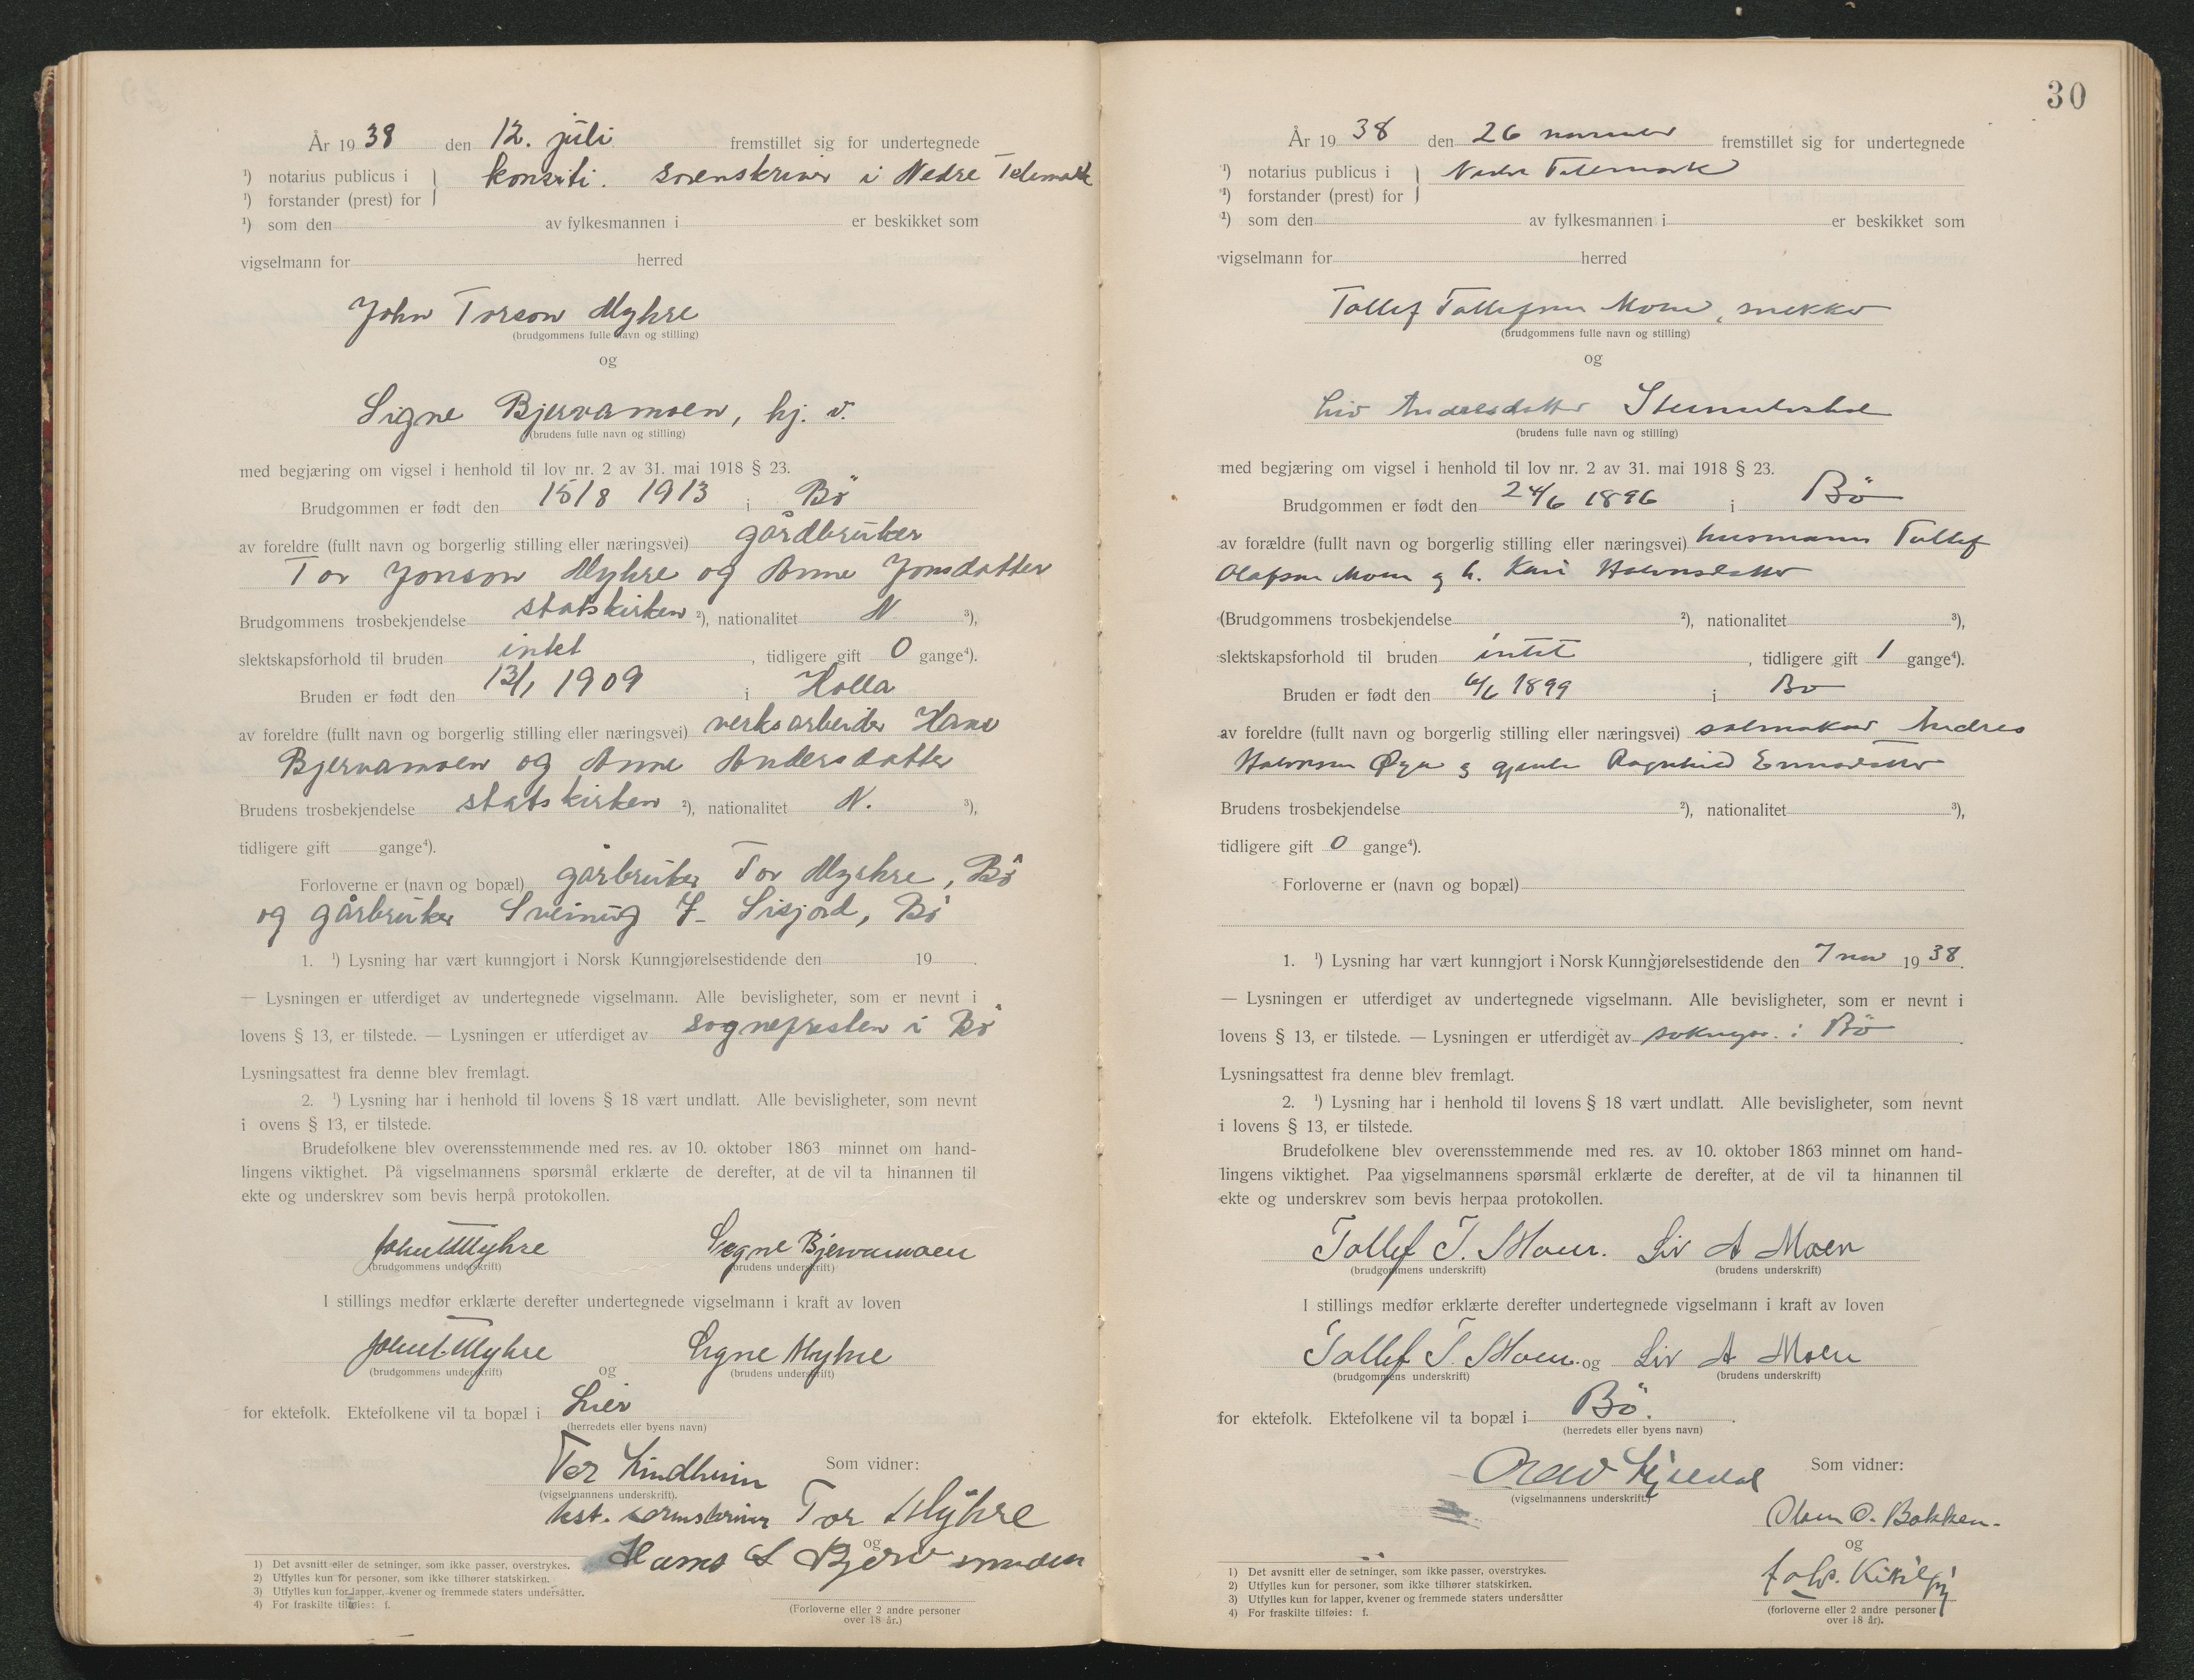 År 19 38 den 12. juli fremstillet sig for undertegnede
¹) notarius publicus i konstit. sorenskriver i Nedre Telemark
¹) forstander (prest) for
¹) som den av fylkesmannen i er beskikket som
vigselmann for herred
John Torson Myhre
(brudgommens fulle navn og stilling)
og
Signe Bjervamoen, hj. v.
(brudens fulle navn og stilling)
med begjæring om vigsel i henhold til lov nr. 2 av 31. mai 1918 § 23.
Brudgommen er født den 15/8 1913 i Bö
av foreldre (fullt navn og borgerlig stilling eller næringsvei) gårdbruker
Tor Jonson Myhre og Anne Jonsdatter
Brudgommens trosbekjendelse statskirken ²), nationalitet N ³),
slektskapsforhold til bruden intet, tidligere gift 0 gange⁴).
Bruden er født den 13/1 1909 i Holla
av foreldre (fullt navn og borgerlig stilling eller næringsvei) verksarbeider Hans
Bjervamoen og Anne Andersdatter
Brudens trosbekjendelse statskirken ²), nationalitet N. ³),
tidligere gift gange⁴).
Forloverne er (navn og bopæl) gårbruker Tor Myhre, Bö
og gårbruker Sveinung Sisjord, Bö
1. ¹) Lysning har vært kunngjort i Norsk Kunngjørelsestidende den 19 .
— Lysningen er utferdiget av undertegnede vigselmann. Alle bevisligheter, som er nevnt i
lovens § 13, er tilstede. — Lysningen er utferdiget av sognepresten i Bö
Lysningsattest fra denne blev fremlagt.
2. ¹) Lysning har i henhold til lovens § 18 vært undlatt. Alle bevisligheter, som nevnt
i ovens § 13, er tilstede.
Brudefolkene blev overensstemmende med res. av 10. oktober 1863 minnet om hand-
lingens viktighet. På vigselmannens spørsmål erklærte de derefter, at de vil ta hinannen til
ekte og underskrev som bevis herpå protokollen.
John T Myhre Signe Bjervamoen
(brudgommens underskrift) (brudens underskrift)
I stillings medfør erklærte derefter undertegnede vigselmann i kraft av loven
John T. Myhre og Signe Myhre
(brudgommens underskrift) (brudens underskrift)
for ektefolk. Ektefolkene vil ta bopæl i Lier
(herredets eller byens navn)
Tor Lindheim Som vidner:
(vigselmannens underskrift).
kst. sorenskriver Tor Myhre
og
Hans Bjerv
1) Det avsnitt eller de setninger, som ikke passer, overstrykes.
2) Utfylles kun for personer, som ikke tilhører statskirken.
3) Utfylles kun for lapper, kvener og fremmede staters undersåtter.
4) For fraskilte tilføies: f.
(Forloverne eller 2 andre personer
over 18 år.)
30
År 19 38 den 26 november fremstillet sig for undertegnede
¹) notarius publicus i Nedre Telemark
¹) forstander (prest) for
¹) som den av fylkesmannen i er beskikket som
vigselmann for herred
Tollef Tollefsen Moen, snekker
(brudgommens fulle navn og stilling)
og
Liv Andresdatter
(brudens fulle navn og stilling)
med begjæring om vigsel i henhold til lov nr. 2 av 31. mai 1918 § 23.
Brudgommen er født den 24/6 1896 i Bö
av forældre (fullt navn og borgerlig stilling eller næringsvei) husmann Tollef
Olafsen Moen og h. Kari Halvorsdatter
(Brudgommens trosbekjendelse ²), nationalitet ³),
slektskapsforhold til bruden intet, tidligere gift 1 gange⁴).
Bruden er født den 6/6 1899 i Bø
av foreldre (fullt navn og borgerlig stilling eller næringsvei) salmaker Andres
Halvorsen Øya og Ragnhild
Brudens trosbekjendelse ²), nationalitet ³),
tidligere gift 0 gange⁴).
Forloverne er (navn og bopæl)
1. ¹) Lysning har vært kunngjort i Norsk Kunngjørelsestidende den 7 nov 19 38.
— Lysningen er utferdiget av undertegnede vigselmann. Alle bevisligheter, som er nevnt i
lovens § 13, er tilstede. — Lysningen er utferdiget av soknepr. i Bö.
Lysningsattest fra denne blev fremlagt.
2. ¹) Lysning har i henhold til lovens § 18 vært undlatt. Alle bevisligheter, som nevnt
i lovens § 13, er tilstede.
Brudefolkene blev overensstemmende med res. av 10. oktober 1863 minnet om hand-
lingens viktighet. Paa vigselmannens spørsmål erklærte de derefter, at de vil ta hinannen til
ekte og underskrev som bevis herpaa protokollen.
Tollef T. Moen. Liv A Moen
(brudgommens underskrift) (brudens underskrift)
I stillings medfør erklærte derefter undertegnede vigselmann i kraft av loven
Tollef T. Moen. og Liv A Moen
(brudgommens underskrift) (brudens underskrift)
for ektefolk. Ektefolkene vil ta bopæl i Bö.
(herredets eller byens navn)
Som vidner:
(vigselmannens underskrift.)
Olam O. Bakken.
og
1) Det avsnitt eller de setninger, som ikke passer, overstrykes.
2) Utfylles kun for personer, som ikke tilhører statskirken.
3) Utfylles kun for lapper, kvener og fremmede staters undersåtter
4) For fraskilte tilføies: f.
(forloverne eller 2 andre personer
over 18 år).